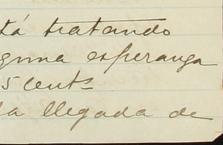 tá tratando
guna esperanza
5 cents
la llegada de